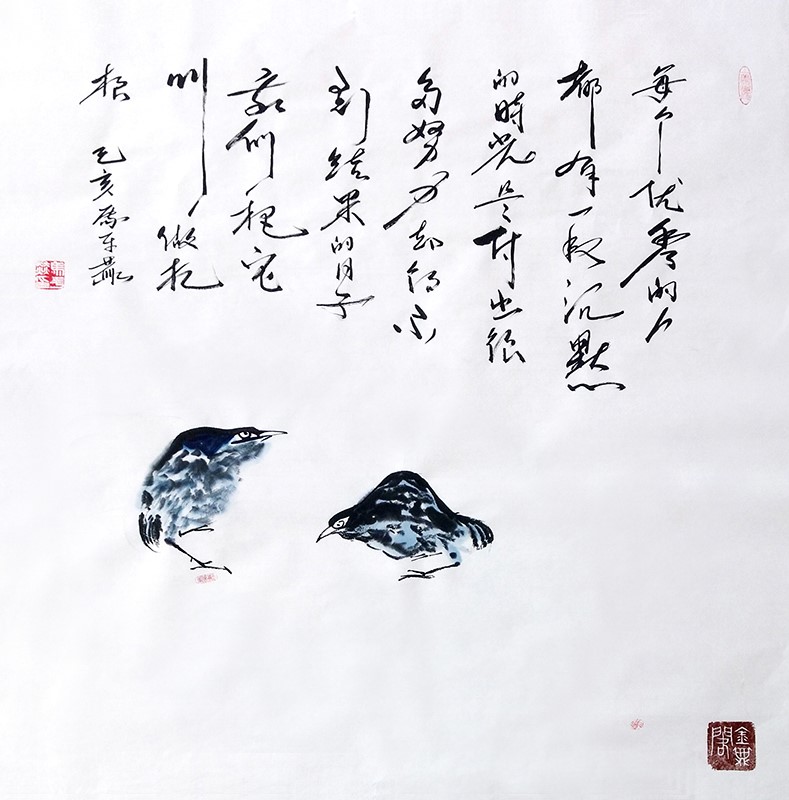 每个优秀的人
都有一段沉默
的時光是付出很
多努力却得不
到结果的日子
我们把它
叫做扎
根 己亥